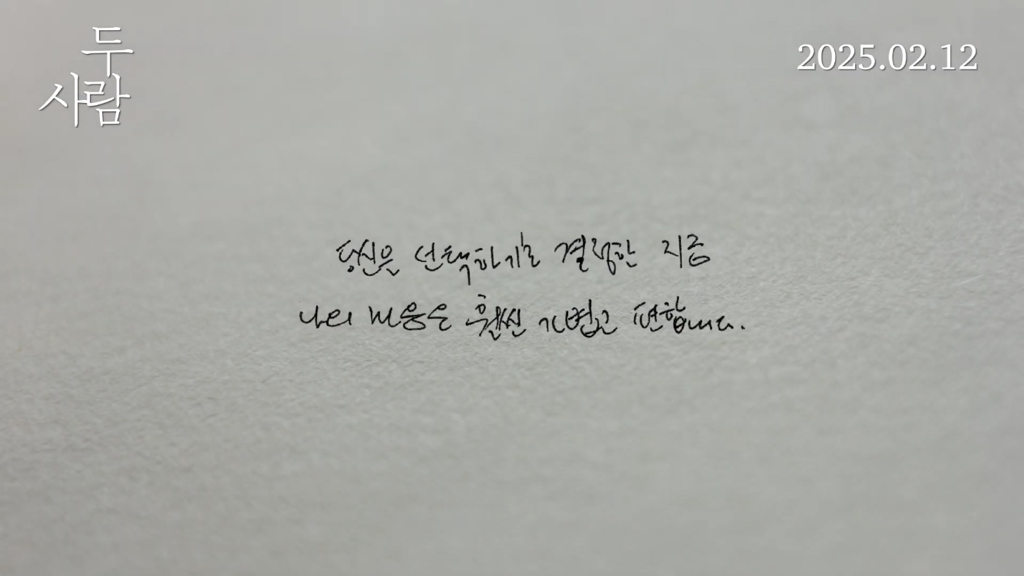 두
사람
2025.02.12
당신은 선택하기로 결정한 지금
나의 마음은 훨씬 가볍고 편합니다.